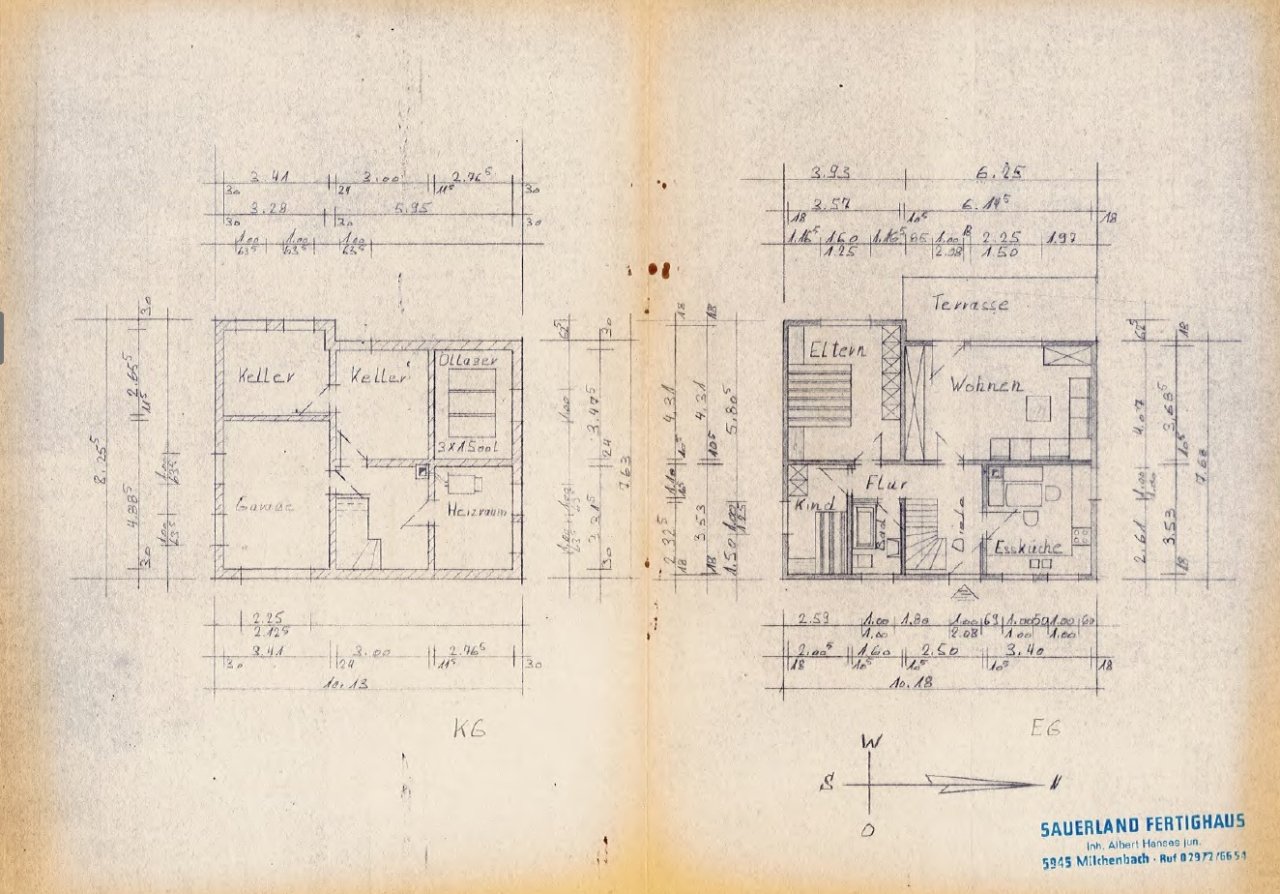 3.41 3.00 2.76⁵
30 24 11⁵ 30
3.28 5.95
30 30 30
1.00 1.00 1.00
63⁵ 63⁵ 63⁵
Keller
Keller
Öllager
3X1500l
Garage
Heizraum
30
2.65⁵
11⁵
4.88⁵
30
8.25⁵
1.00
63⁵
1.00
63⁵
62⁵
30
3.47⁵
24
3.31⁵
30
7.63
2.25
2.125
3.41 3.00 2.76⁵
30 24 11⁵ 30
10.13
KG
3.93 6.25
3.57 6.14⁵
18 10⁵ 18
1.16⁵ 1.60 1.16⁵ 85 1.00 2.25 1.97
1.25 2.08 1.50
Terrasse
Eltern
Wohnen
Flur
Kind
Bad
Diele
Essküche
18
4.31
10⁵
2.32⁵
18
18
4.31
10⁵
3.53
18
5.80⁵
1.50
62⁵
18
4.07
3.68⁵
10⁵
2.61
3.53
18
7.68
2.59 1.00 1.80 1.00 69 1.00 50 1.00 60
1.00 2.08 1.00 1.00
2.00⁵ 1.60 2.50 3.40
18 10⁵ 10⁵ 10⁵ 18
10.18
EG
W
S N
O
SAUERLAND FERTIGHAUS
Inh. Albert Hanses jun.
5945 Milchenbach · Ruf 02972/6654